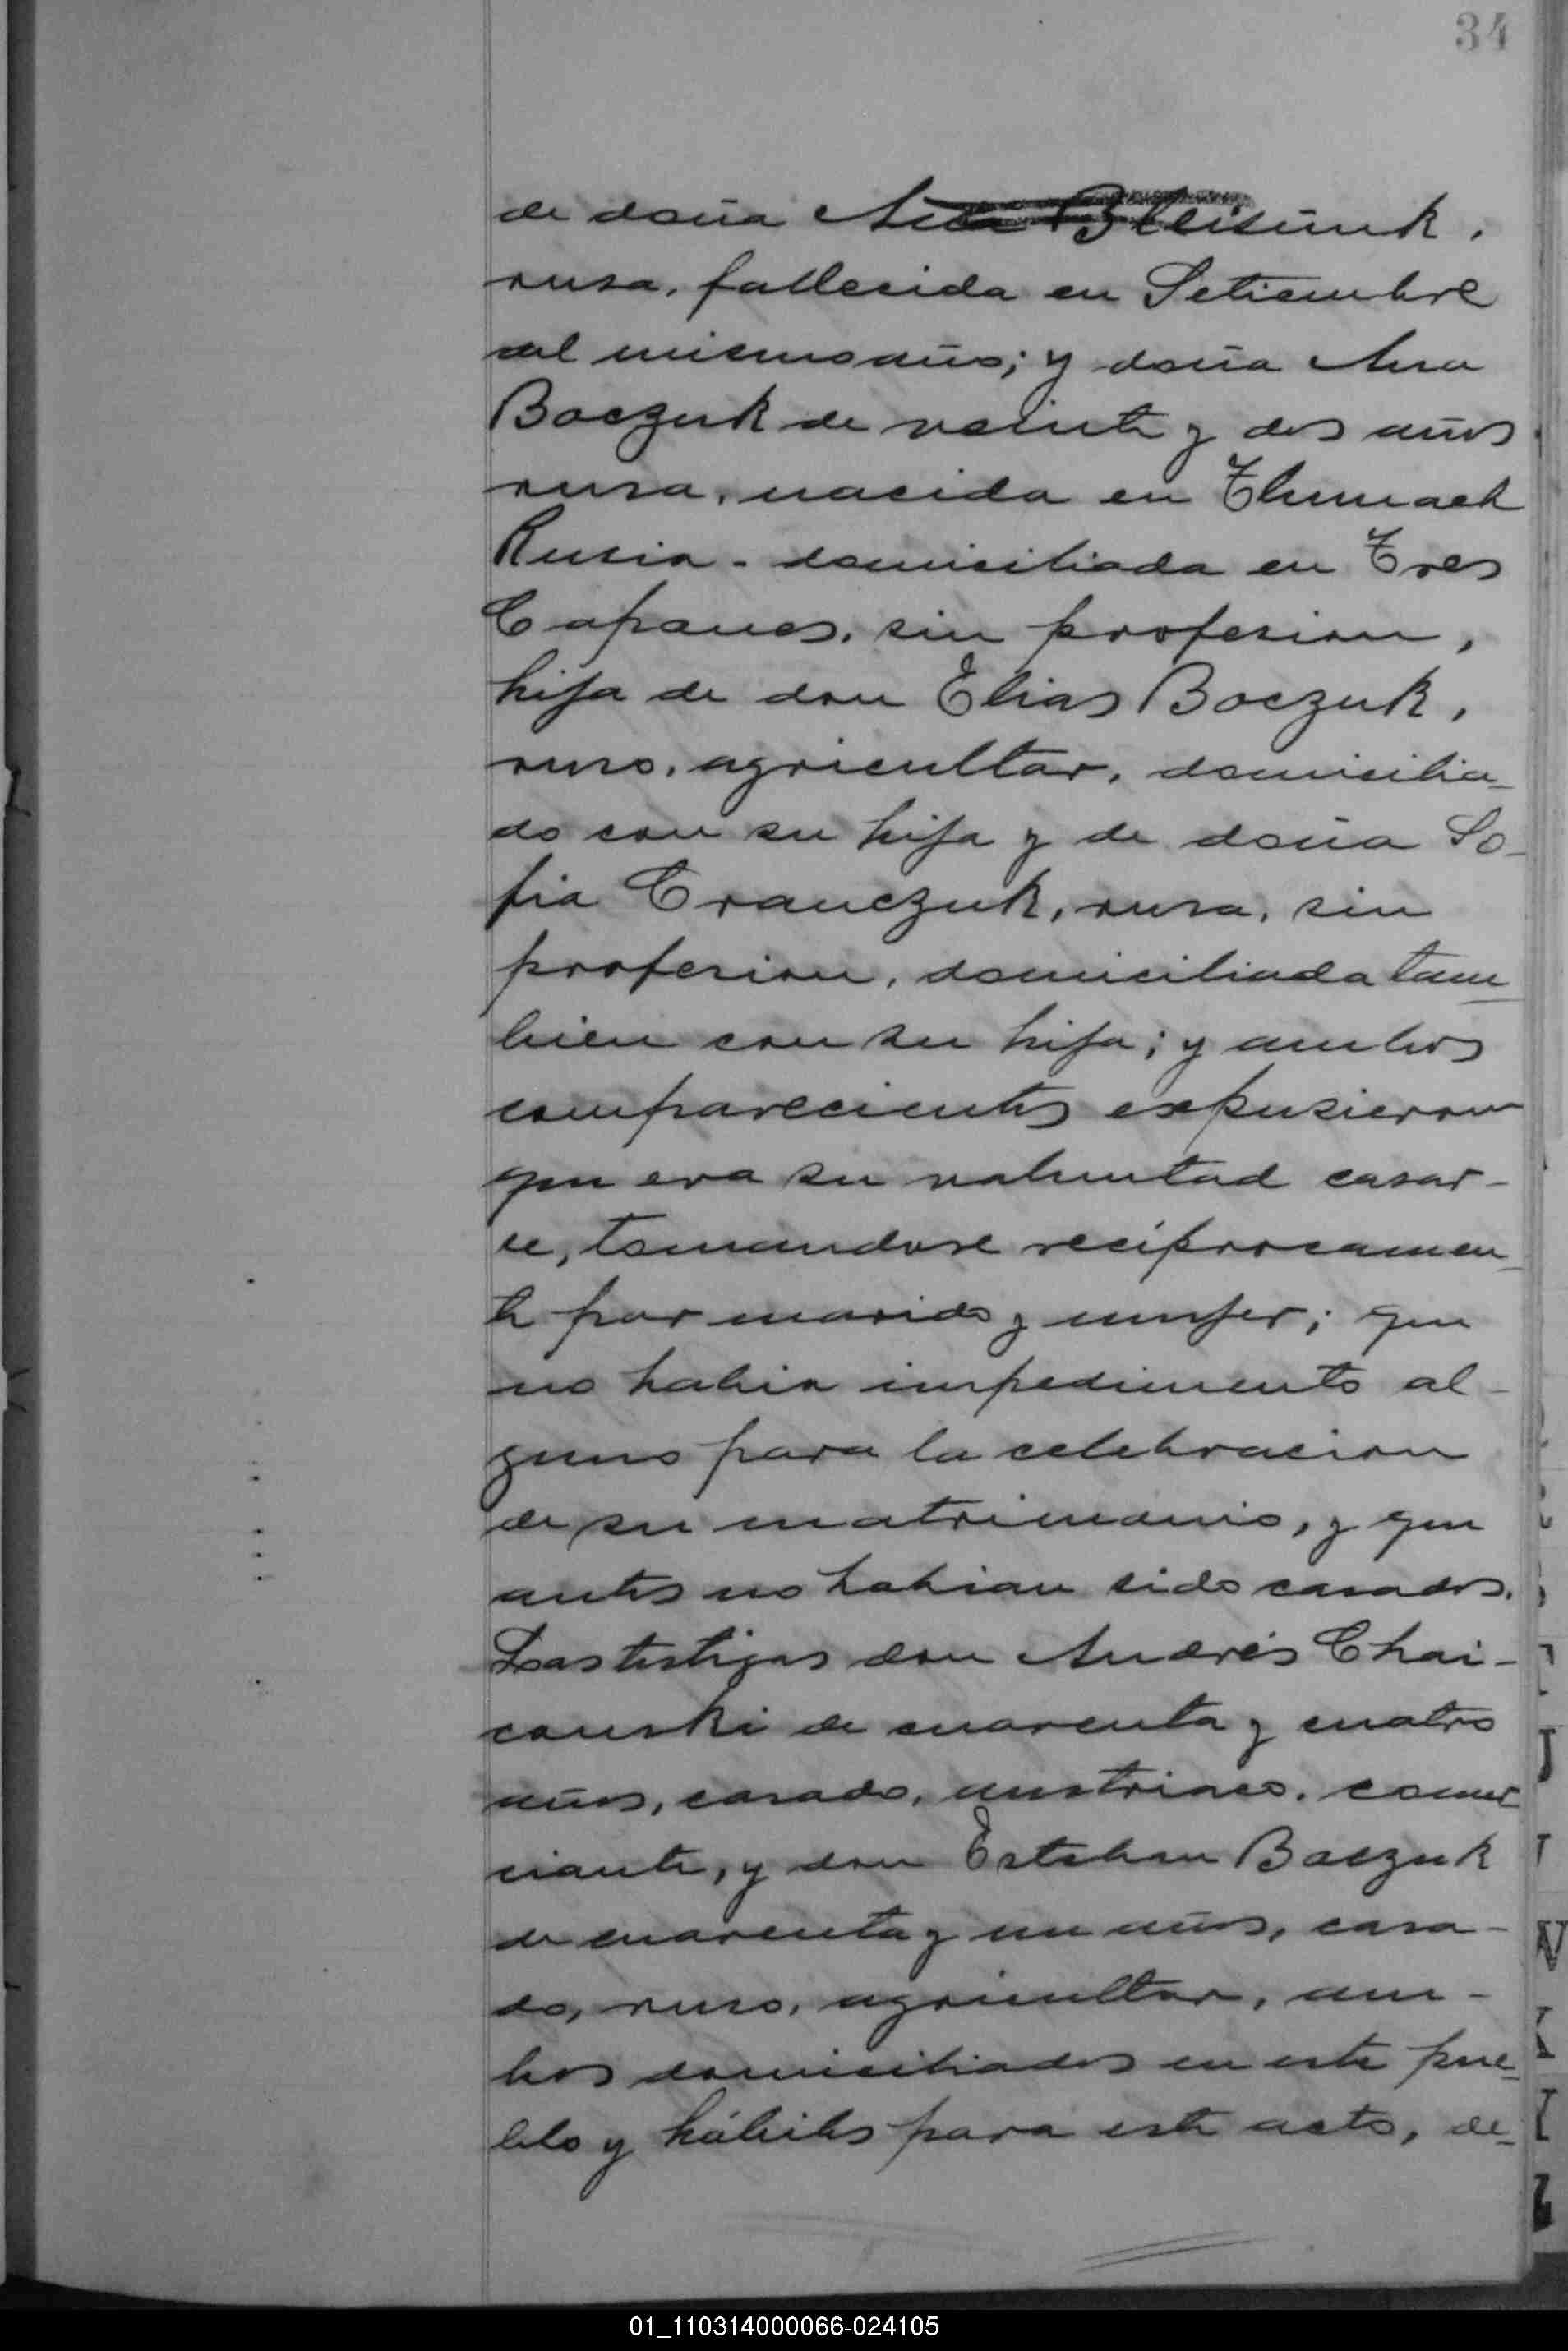 34
de doña
rusa, fallecida en Setiembre
del mismo año; y doña Ana
Boczuk de veinte y dos años
rusa, nacida en Tlumach
Rusia - domiciliada en Tres
Capones, sin profesion,
hija de don Elias Boczuk,
ruso, agricultor, domicilia-
do con su hija y de doña So-
fia Cranczuk, rusa, sin
profesion, domiciliada tam
bien con su hija; y ambos
comparecientes expusieron
que era su voluntad casar-
se, tomandose reciprocamen-
te por marido y mujer; que
no habia impedimento al-
guno para la celebracion
de su matrimonio, y que
antes no habian sido casados.
Los testigos don Andrés Chai-
couski de cuarenta y cuatro
años, casado, austriaco, comer
ciante, y don Esteban Boczuk
de cuarenta y un años, casa-
do, ruso, agricultor, am-
bos domiciliados en este pue-
blo y hábiles para este acto, de-
01_110314000066-024105